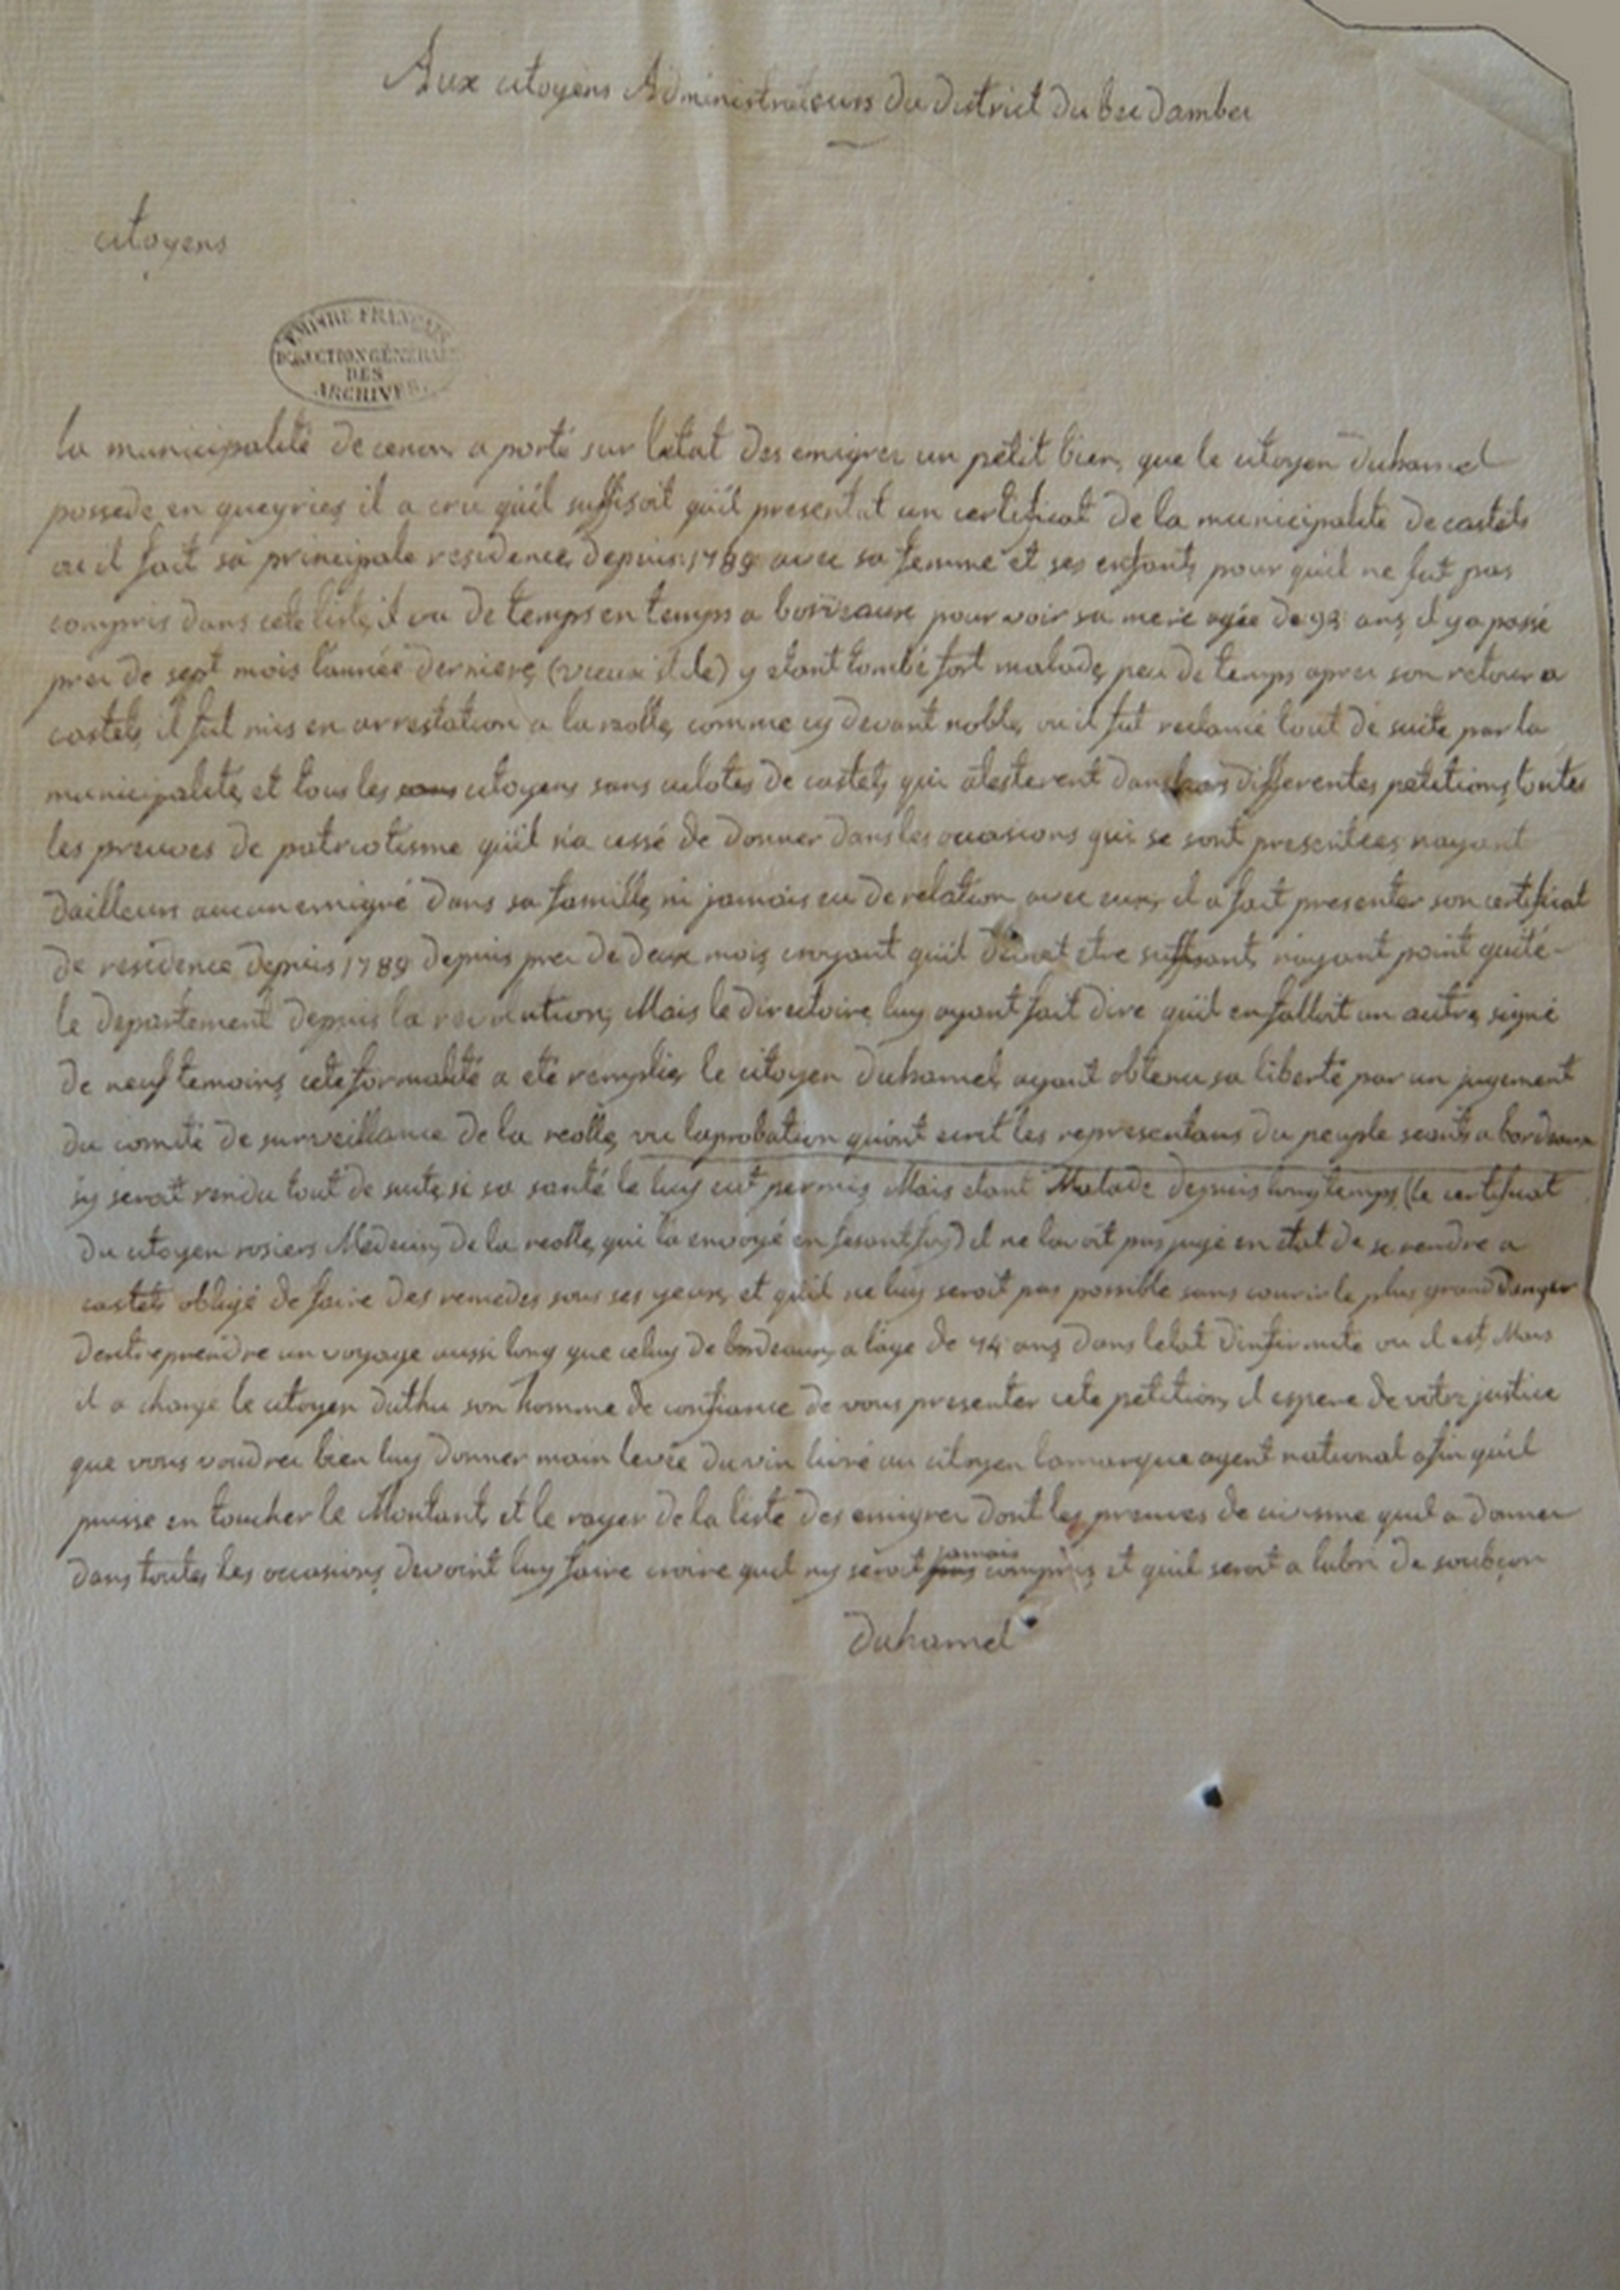 Aux citoyens Administrateurs du district du bec dambez
citoyens
EMPIRE FRANÇAIS
DIRECTION GÉNÉRALE
DES
ARCHIVES.
la municipalité de cenon a porté sur létat des emigrez un petit bien, que le citoyen duhamel
possede en queyries, il a cru qu'il suffisoit qu'il presentat un certificat de la municipalité de castets
ou il fait sa principale residence, depuis 1789 avec sa femme et ses enfants, pour quil ne fut pas
compris dans cete liste, il va de temps en temps a bordeaux pour voir sa mere agée de 92 ans, il y a passé
prez de sept mois l'année derniere, (vieux stile) y etant tombé fort malade, peu de temps aprez son retour a
castets, il fut mis en arrestation a la reolle, comme cy devant noble, ou il fut reclamé tout de suite par la
municipalité, et tous les citoyens sans culotes de castets, qui atesterent dans leurs differentes petitions, toutes
les preuves de patriotisme qu'il n'a cessé de donner dans les occasions qui se sont presentées nayant
dailleurs aucun emigré dans sa famille, ni jamais eu de relation avec eux, il a fait presenter son certificat
de residence depuis 1789 depuis prez de deux mois, croyant qu'il devoit etre suffisant, n'ayant point quité
le departement depuis la revolution, Mais le directoire luy ayant fait dire qu'il en falloit un autre, signé
de neuf temoins, cete formalité a eté remplie, le citoyen duhamel, ayant obtenu sa liberté par un jugement
du comité de surveillance de la reolle, vu laprobation qu'ont ecrit les representans du peuple seants a bordeaux
sy seroit rendu tout de suite, si sa santé le luy eut permis, Mais etant Malade depuis longtemps, (le certificat
du citoyen rosiers Medecin, de la reolle, qui la envoyé en fesant foy) il ne lavoit pas jugé en état de se rendre a
castets obligé de faire des remedes sous ses yeux, et qu'il ne luy seroit pas possible sans courir le plus grand danger
dentreprendre un voyage aussi long que celuy de bordeaux, a l'age de 74 ans, dans letat dinfirmité ou il est, Mais
il a chargé le citoyen duthu son homme de confiance de vous presenter cete petition, il espere de votre justice
que vous voudrez bien luy donner main levée du vin livré au citoyen lamarque agent national afin qu'il
puisse en toucher le Montant, et le rayer de la liste des emigrez dont les preuves de civisme quil a donner
dans toutes les occasions, devoint luy faire croire quil ny seroit jamais compris, et quil seroit a labri de soubçon
duhamel